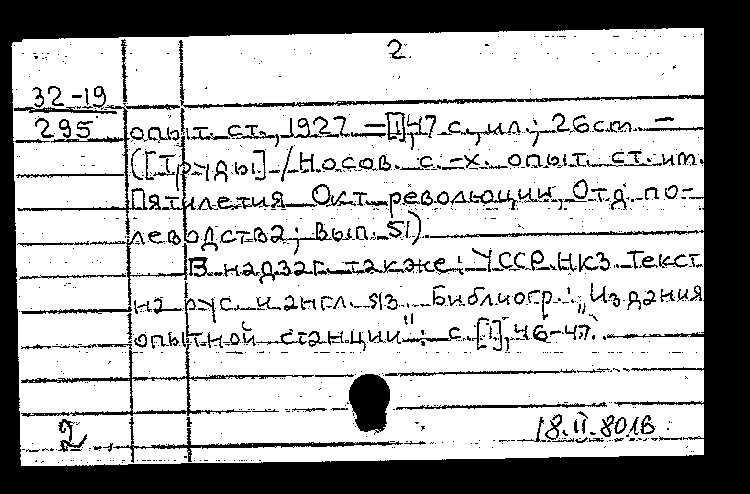 2
32-19
295
опыт. ст., 1927. — [1], 47 с., ил.; 26 см. —
([Труды] / Носов. с.-х. опыт. ст. им.
Пятилетия Окт. революции, Отд. по-
леводства; Вып. 51)
В надзаг. также: УССР. НКЗ. Текст
на рус. и англ. яз. Библиогр.: „Издания
опытной станции": с. [1], 46-47.
2